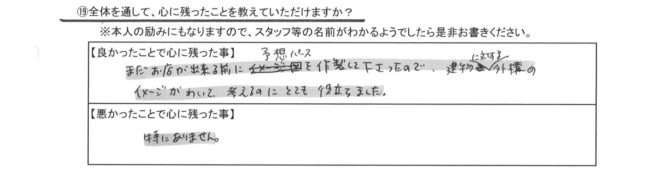 ⑲全体を通して、心に残ったことを教えていただけますか？
※本人の励みにもなりますので、スタッフ等の名前がわかるようでしたら是非お書きください。
【良かったことで心に残った事】
まだお店が出来る前に予想パースを作製して下さったので、建物に対する外構の
イメージがわいて、考えるのにとても役立ちました。
【悪かったことで心に残った事】
特にありません。